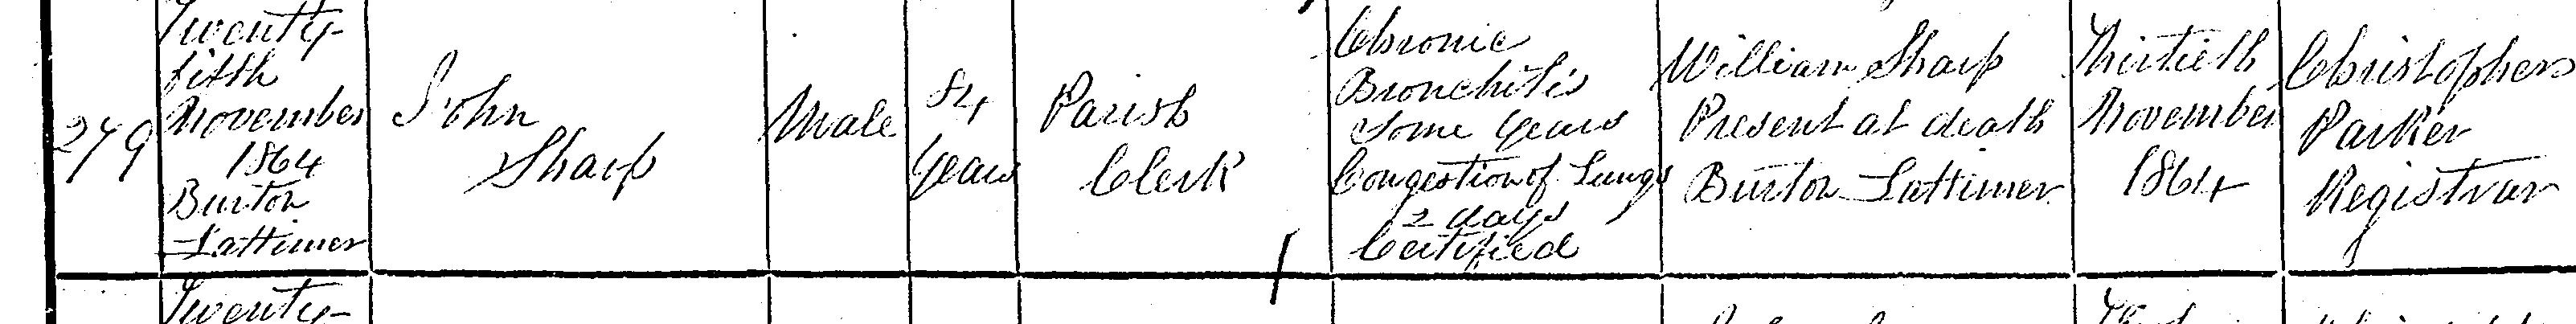 279
Twenty-
fifth
November
1864
Burton
Lattimer
John
Sharp
Male
84
Years
Parish
Clerk
Chronic
Bronchitis
Some Years
Congestion of Lungs
2 days
Certified
William Sharp
Present at death
Burton Lattimer
Thirtieth
November
1864
Christopher
Parker
Registrar
Twenty-